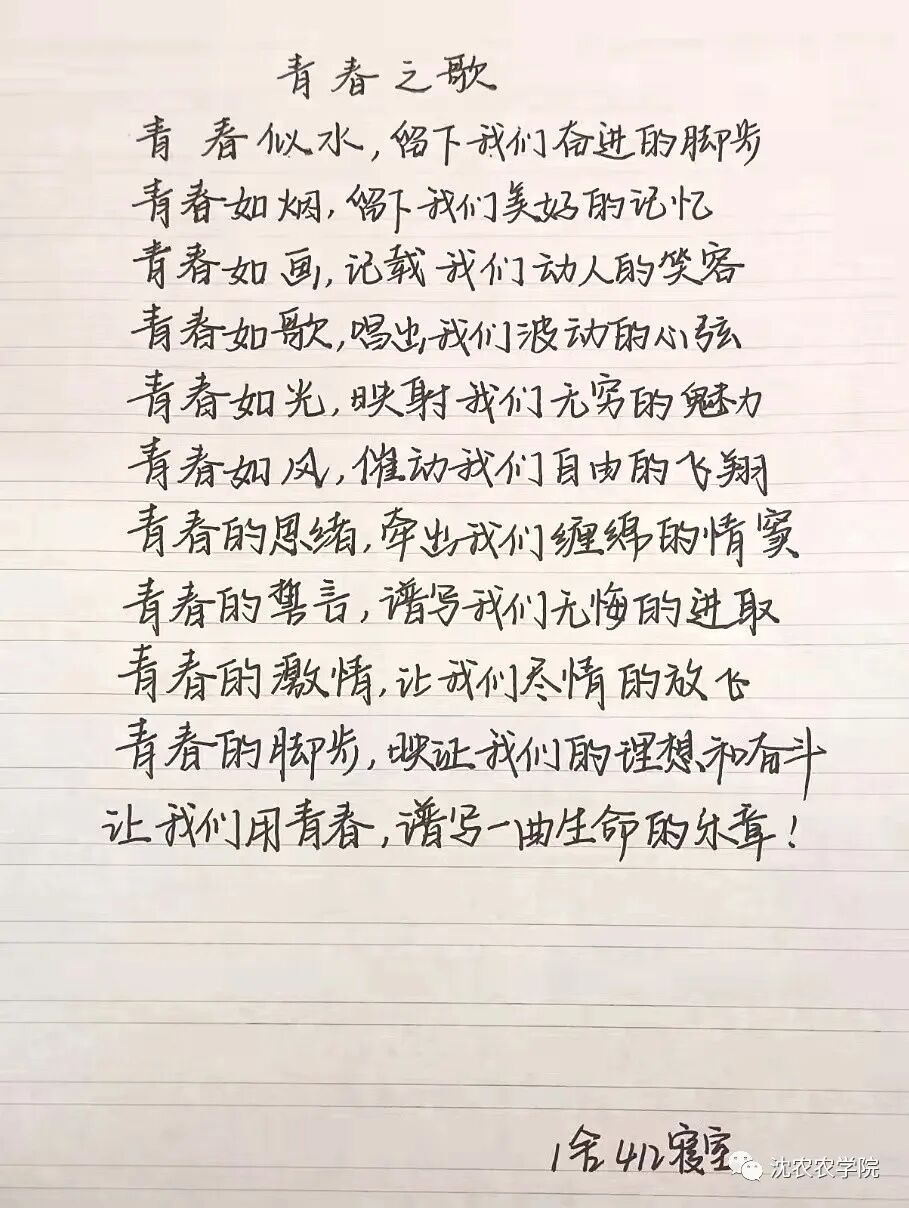 青春之歌
青春似水,留下我们奋进的脚步
青春如烟,留下我们美好的记忆
青春如画,记载我们动人的笑容
青春如歌,唱出我们波动的心弦
青春如光,映射我们无穷的魅力
青春如风,催动我们自由的飞翔
青春的思绪,牵出我们缠绵的情窦
青春的誓言,谱写我们无悔的进取
青春的激情,让我们尽情的放飞
青春的脚步,映证我们的理想和奋斗
让我们用青春,谱写一曲生命的乐章!
1舍412寝室
沈农农学院